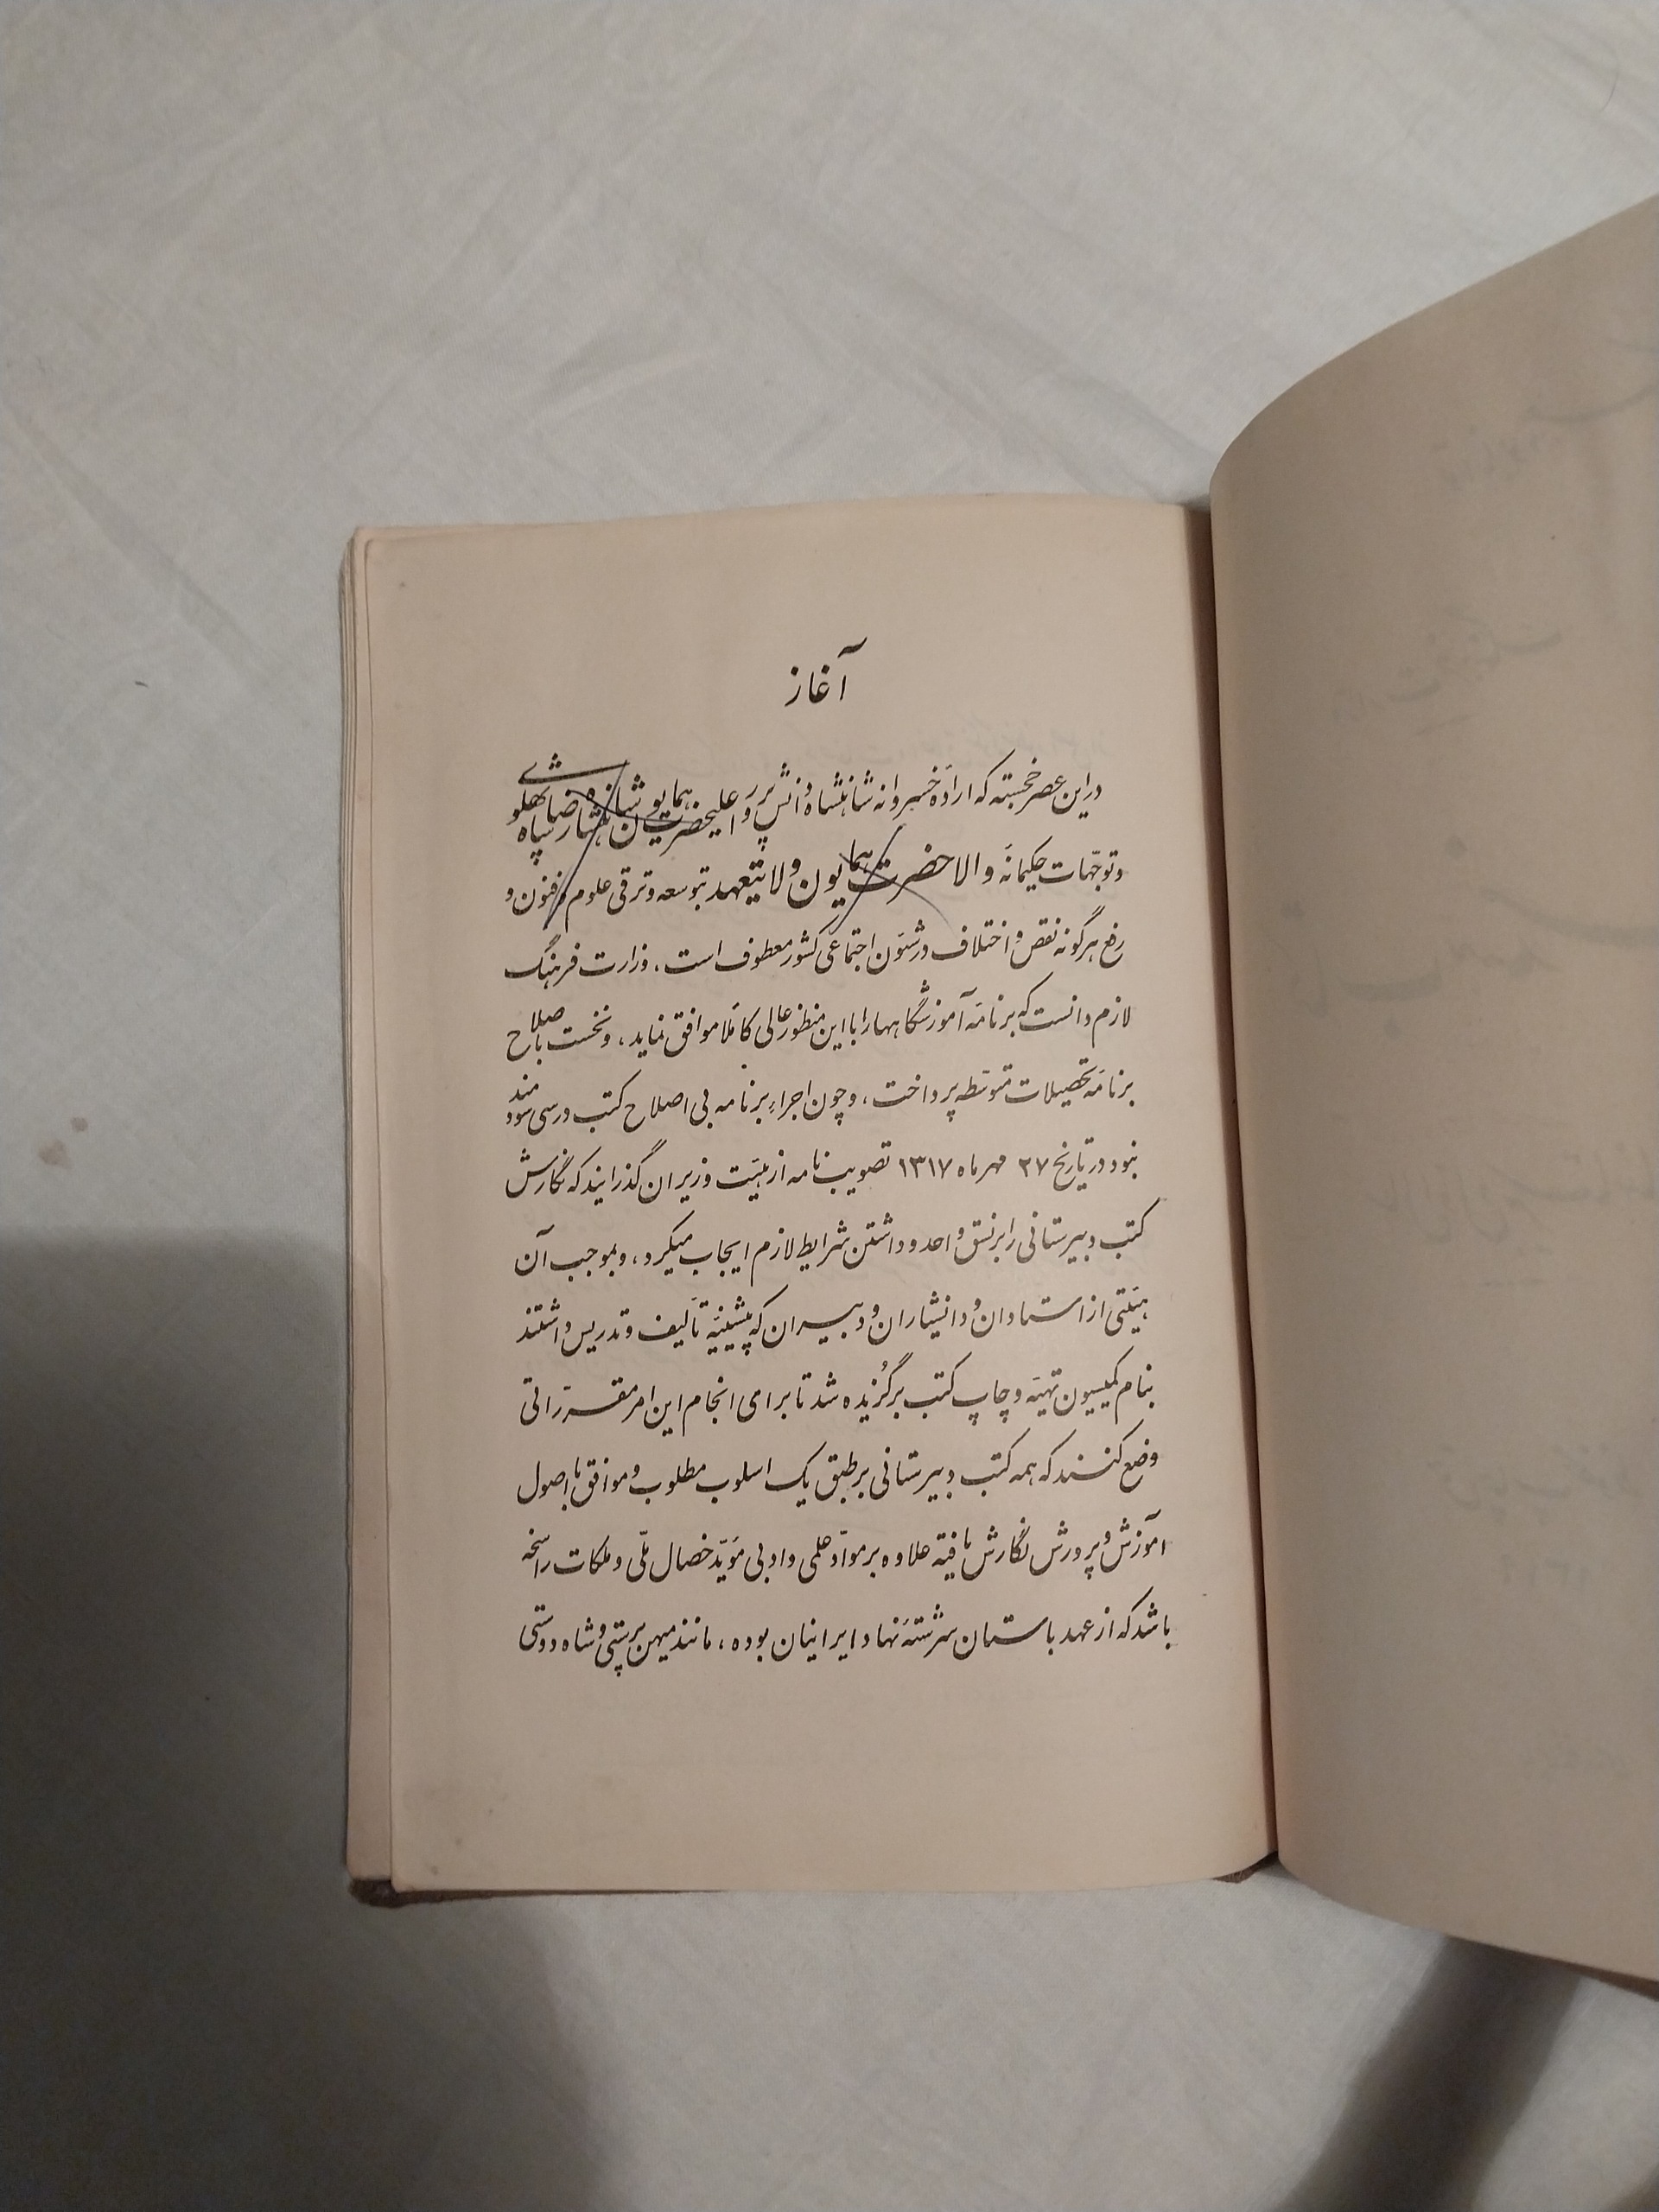 آغاز
دراین عصر خجسته که ارادۀ خسروانه شاهنشاه دانش پرور اعلیحضرت همایون شاهنشاه رضا شاه پهلوی
وتوجّهات حکیمانۀ والاحضرت همایون ولایتعهد بتوسعه وترقی علوم و فنون و
رفع هرگونه نقص و اختلاف در شئون اجتماعی کشور معطوف است، وزارت فرهنگ
لازم دانست که برنامۀ آموزشگاهها را با این منظور عالی کاملاً موافق نماید، و نخست باصلاح
برنامۀ تحصیلات متوسّطه پرداخت، و چون اجراء برنامه بی اصلاح کتب درسی سودمند
نبود در تاریخ ۲۷ مهرماه ۱۳۱۷ تصویب نامه از هیئت وزیران گذرانید که نگارش
کتب دبیرستانی را بر نسق واحد و داشتن شرایط لازم ایجاب میکرد، و بموجب آن
هیئتی از استادان و دانشیاران و دبیران که پیشینۀ تألیف و تدریس داشتند
بنام کمیسیون تهیّه و چاپ کتب برگُزیده شد تا برای انجام این امر مقرّراتی
وضع کنند که همه کتب دبیرستانی بر طبق یک اسلوب مطلوب و موافق با اصول
آموزش و پرورش نگارش یافته علاوه بر موادّ علمی و ادبی مؤیّد خصال ملّی و ملکات راسخه
باشد که از عهد باستان سرشتۀ نهاد ایرانیان بوده، مانند میهن پرستی و شاه دوستی